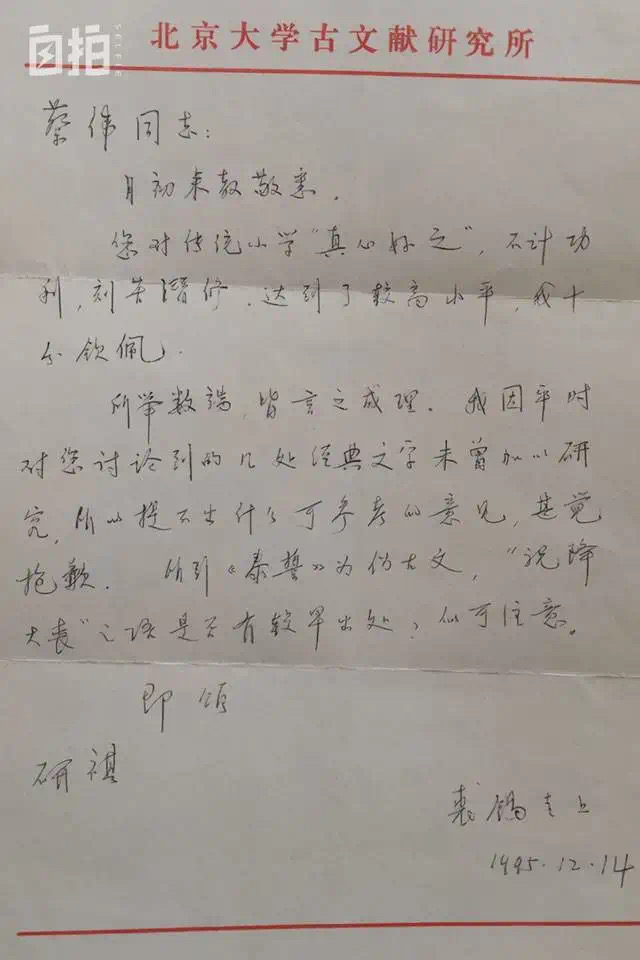 自拍
SELFIE
北京大学古文献研究所
蔡伟同志：
月初来教敬悉．
您对传统小学“真心好之”，不计功
利，刻苦潜修．达到了较高水平，我十
分钦佩．
所举数端，皆言之成理．我因平时
对您讨论到的几处经典文字未曾加以研
究，所以提不出什么可参考的意见，甚觉
抱歉．所引《泰誓》为伪古文，“祝降
大丧”之语是否有较早出处，似可注意。
即颂
研祺
裘锡圭上
1995.12.14